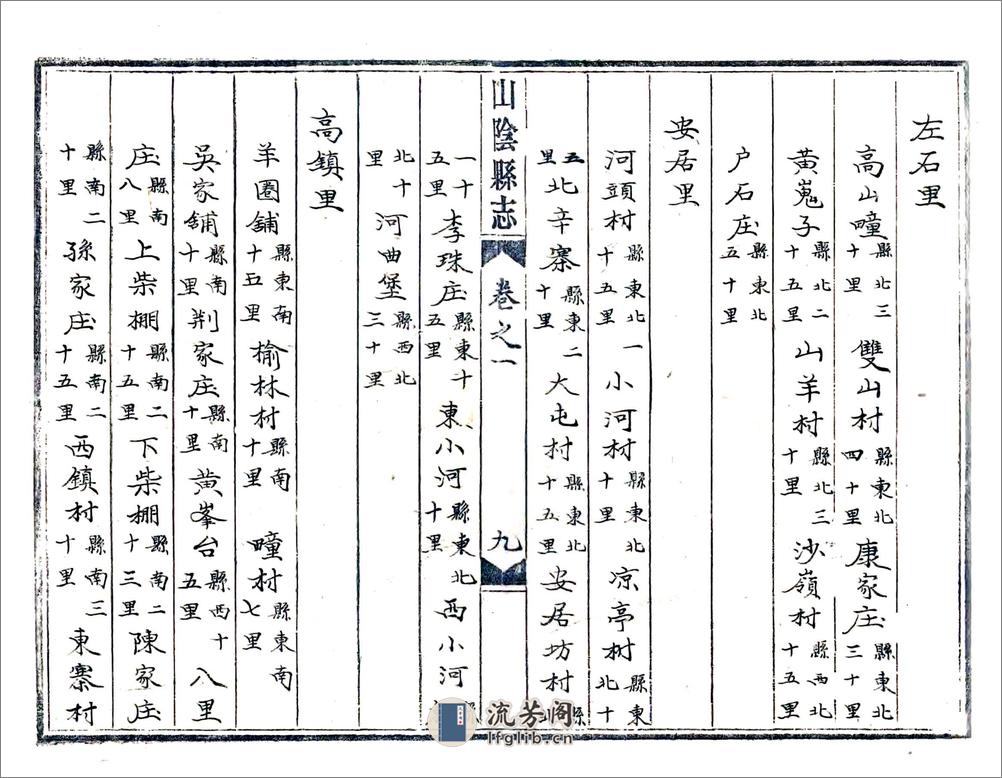 左石里
高山疃縣北三十里　雙山村縣東北四十里　康家庄縣東北三十里
黃嵬子縣北二十五里　山羊村縣北三十里　沙嶺村縣西北十五里
户石庄縣東北五十里
安居里
河頭村縣東北一十五里　小河村縣東北十里　凉亭村縣北十
五里　北辛寨縣東二十里　大屯村縣東北十五里　安居坊村縣北
一十五里　李珠庄縣東十五里　東小河縣東北十里　西小河
北十里　河曲堡縣西北三十里
高鎮里
羊圈舖縣東南十五里　榆林村縣南十里　疃村縣東南七里
吳家舖縣南十里　荆家庄縣南十里　黃峯台縣西十五里　八里
庄縣南八里　上柴棚縣南二十五里　下柴棚縣南二十三里　陳家庄
縣南二十里　孫家庄縣南二十五里　西鎮村縣南三十里　東寨村
山陰縣志
卷之一
九
流芳阁
lfglib.cn